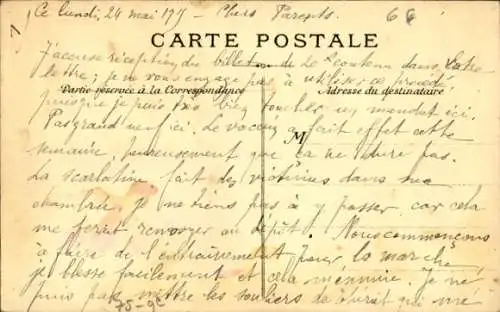 Ce lundi, 24 mai 19 — Chers Parents. 66
CARTE POSTALE
J'accuse réception du billet de dans votre
lettre; je ne vous engage pas à utiliser ce procédé,
Partie réservée à la Correspondance
Adresse du destinataire
puisque je puis très bien toucher un mandat ici.
M
Pas grand neuf ici. Le vaccin a fait effet cette
semaine, heureusement que ça ne dure pas.
La scarlatine fait des victimes dans ma
chambrée. Je ne tiens pas à y passer car cela
me ferait renvoyer au dépôt. Nous commençons
à faire de l'entraînement pour la marche,
je blesse facilement et cela m'ennuie. Je ne
puis pas mettre les souliers de qui me
75-92